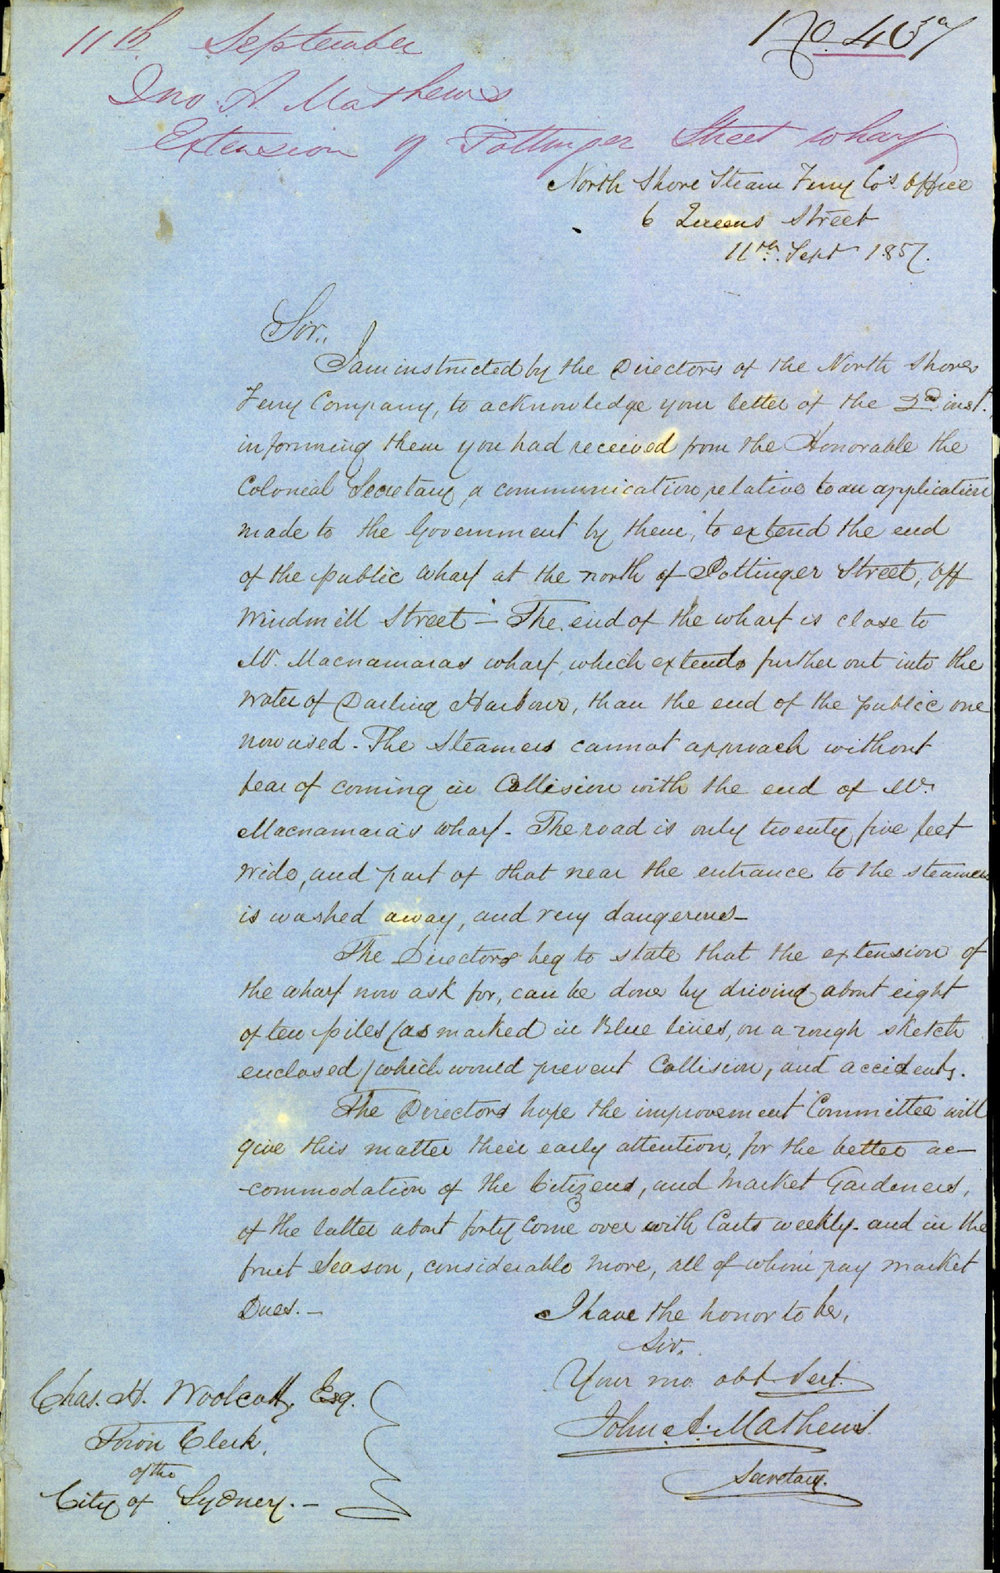 11th September
No. 457
Jno. A. Mathews
Extension of Pottinger Street wharf
North Shore Steam Ferry Co's Office
6 Queens Street
11th. Sept 1857.
Sir,,
I am instructed by the Directors of the North Shore
Ferry Company, to acknowledge your letter of the 2d inst.
informing them you had received from the Honorable the
Colonial Secretary, a communication, relative to an application
made to the Government by them, to extend the end
of the public wharf at the north of Pottinger Street, off
Windmill Street – The end of the wharf is close to
Mr. Macnamaras wharf, which extends further out into the
water of Darling Harbour, than the end of the public one
now used – The Steamers cannot approach without
fear of coming in Collision with the end of Mr.
Macnamara's wharf – The road is only twenty five feet
wide, and part of that near the entrance to the steamers
is washed away, and very dangerous –
The Directors beg to state that the extension of
the wharf now ask for, can be done by driving about eight
of ten piles (as marked in Blue lines, on a rough sketch
enclosed) which would prevent Collision, and accidents.
The Directors hope the improvement Committee will
give this matter their early attention, for the better ac-
-commodation of the Citizens, and Market Gardeners,
of the latter about forty come over with Carts weekly – and in the
fruit Season, considerable more, all of whom pay market
Dues. –
I have the honor to be,
Sir,
Your mo. obt. Sert.
John A. Mathews
Secretary.
Chas. H. Woolcott, Esq.
Town Clerk,
of the
City of Sydney. –